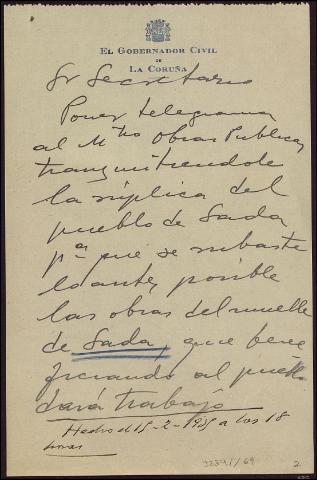 EL GOBERNADOR CIVIL
DE
LA CORUÑA
Sr Secretario
Poner telegrama
al Mtro Obras Publicas
transmitiendole
la súplica del
pueblo de Sada
pa que se subaste
lo antes posible
las obras del muelle
de Sada, que bene
ficiando al pueblo
dará trabajo
Hecho el 15-2-1935 a las 18
horas
2